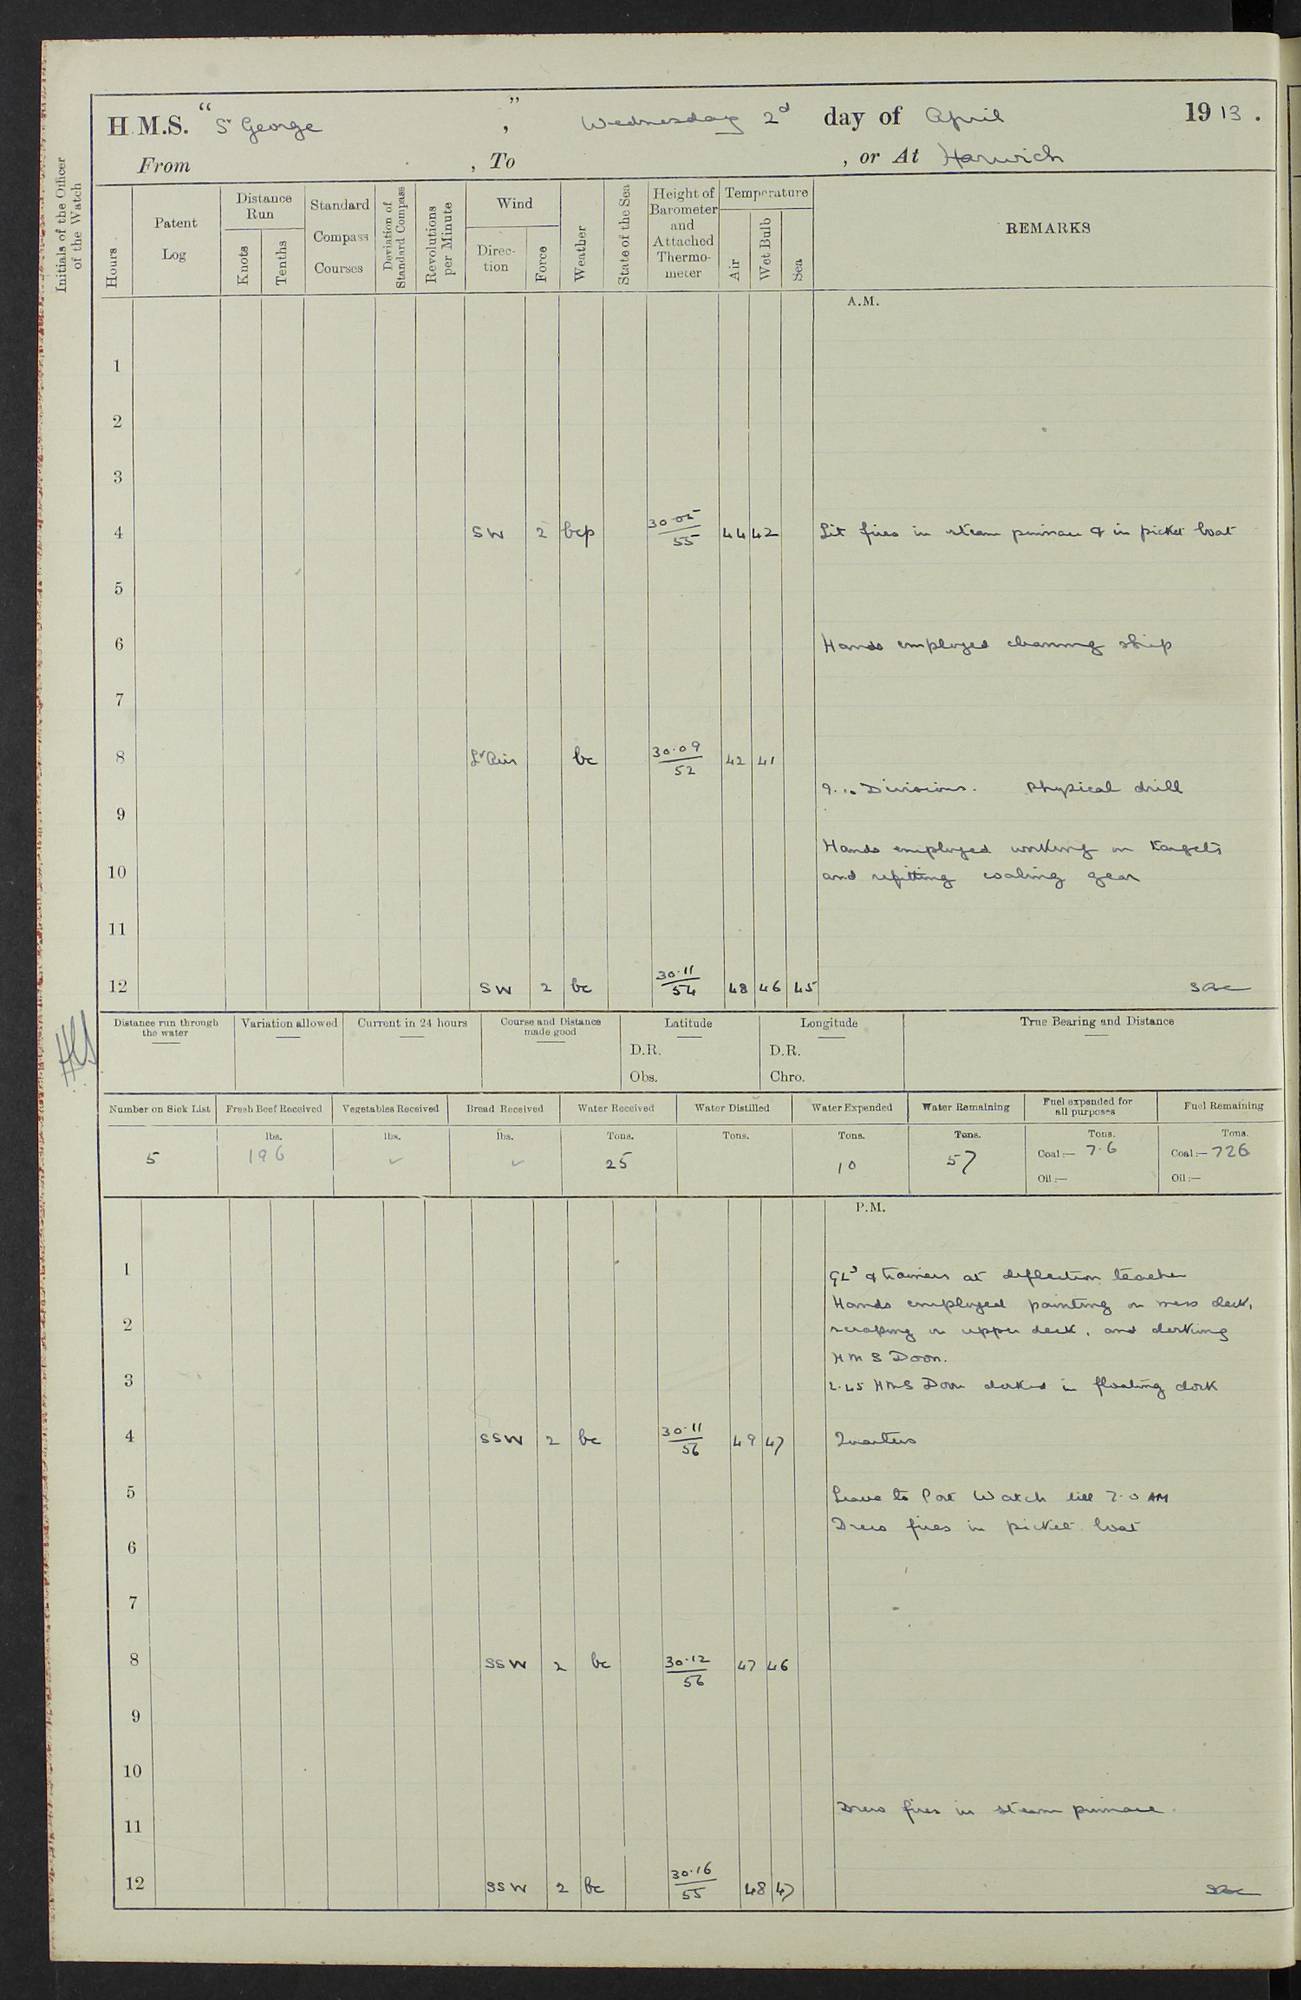 H.M.S. "St George", Wednesday 2d day of April 1913.
From , To , or At Harwich
Initials of the Officer of the Watch
Hours
Patent Log
Distance Run
Knots
Tenths
Standard Compass Courses
Deviation of Standard Compass
Revolutions per Minute
Wind
Direction
Force
Weather
State of the Sea
Height of Barometer and Attached Thermometer
Temperature
Air
Wet Bulb
Sea
REMARKS
A.M.
1
2
3
4 SW 2 bcp 30.05/55 44 42 Lit fires in steam pinnace & in picket boat
5
6 Hands employed cleaning ship
7
8 Lt Airs bc 30.09/52 42 41
9.10 Divisions. Physical drill
9
Hands employed working on targets
10 and refitting coaling gear
11
12 SW 2 bc 30.11/54 48 46 45
Distance run through the water
Variation allowed
Current in 24 hours
Course and Distance made good
Latitude
D.R.
Obs.
Longitude
D.R.
Chro.
True Bearing and Distance
Number on Sick List
Fresh Beef Received
Vegetables Received
Bread Received
Water Received
Water Distilled
Water Expended
Water Remaining
Fuel expended for all purposes
Fuel Remaining
lbs. lbs. lbs. Tons. Tons. Tons. Tons. Tons. Tons.
5 196 ✓ ✓ 25 10 57 Coal:— 7.6 Coal:— 726
Oil:— Oil:—
P.M.
1 GLs & trainers at deflection teacher
Hands employed painting on mess deck,
2 scraping on upper deck, and docking
HMS Doon.
3 2.45 HMS Doon docked in floating dock
4 SSW 2 bc 30.11/56 49 47 Quarters
5 Leave to Port Watch till 7.0 AM
Drew fires in picket boat
6
7
8 SSW 2 bc 30.12/56 47 46
9
10
Drew fires in steam pinnace.
11
12 SSW 2 bc 30.16/55 48 47